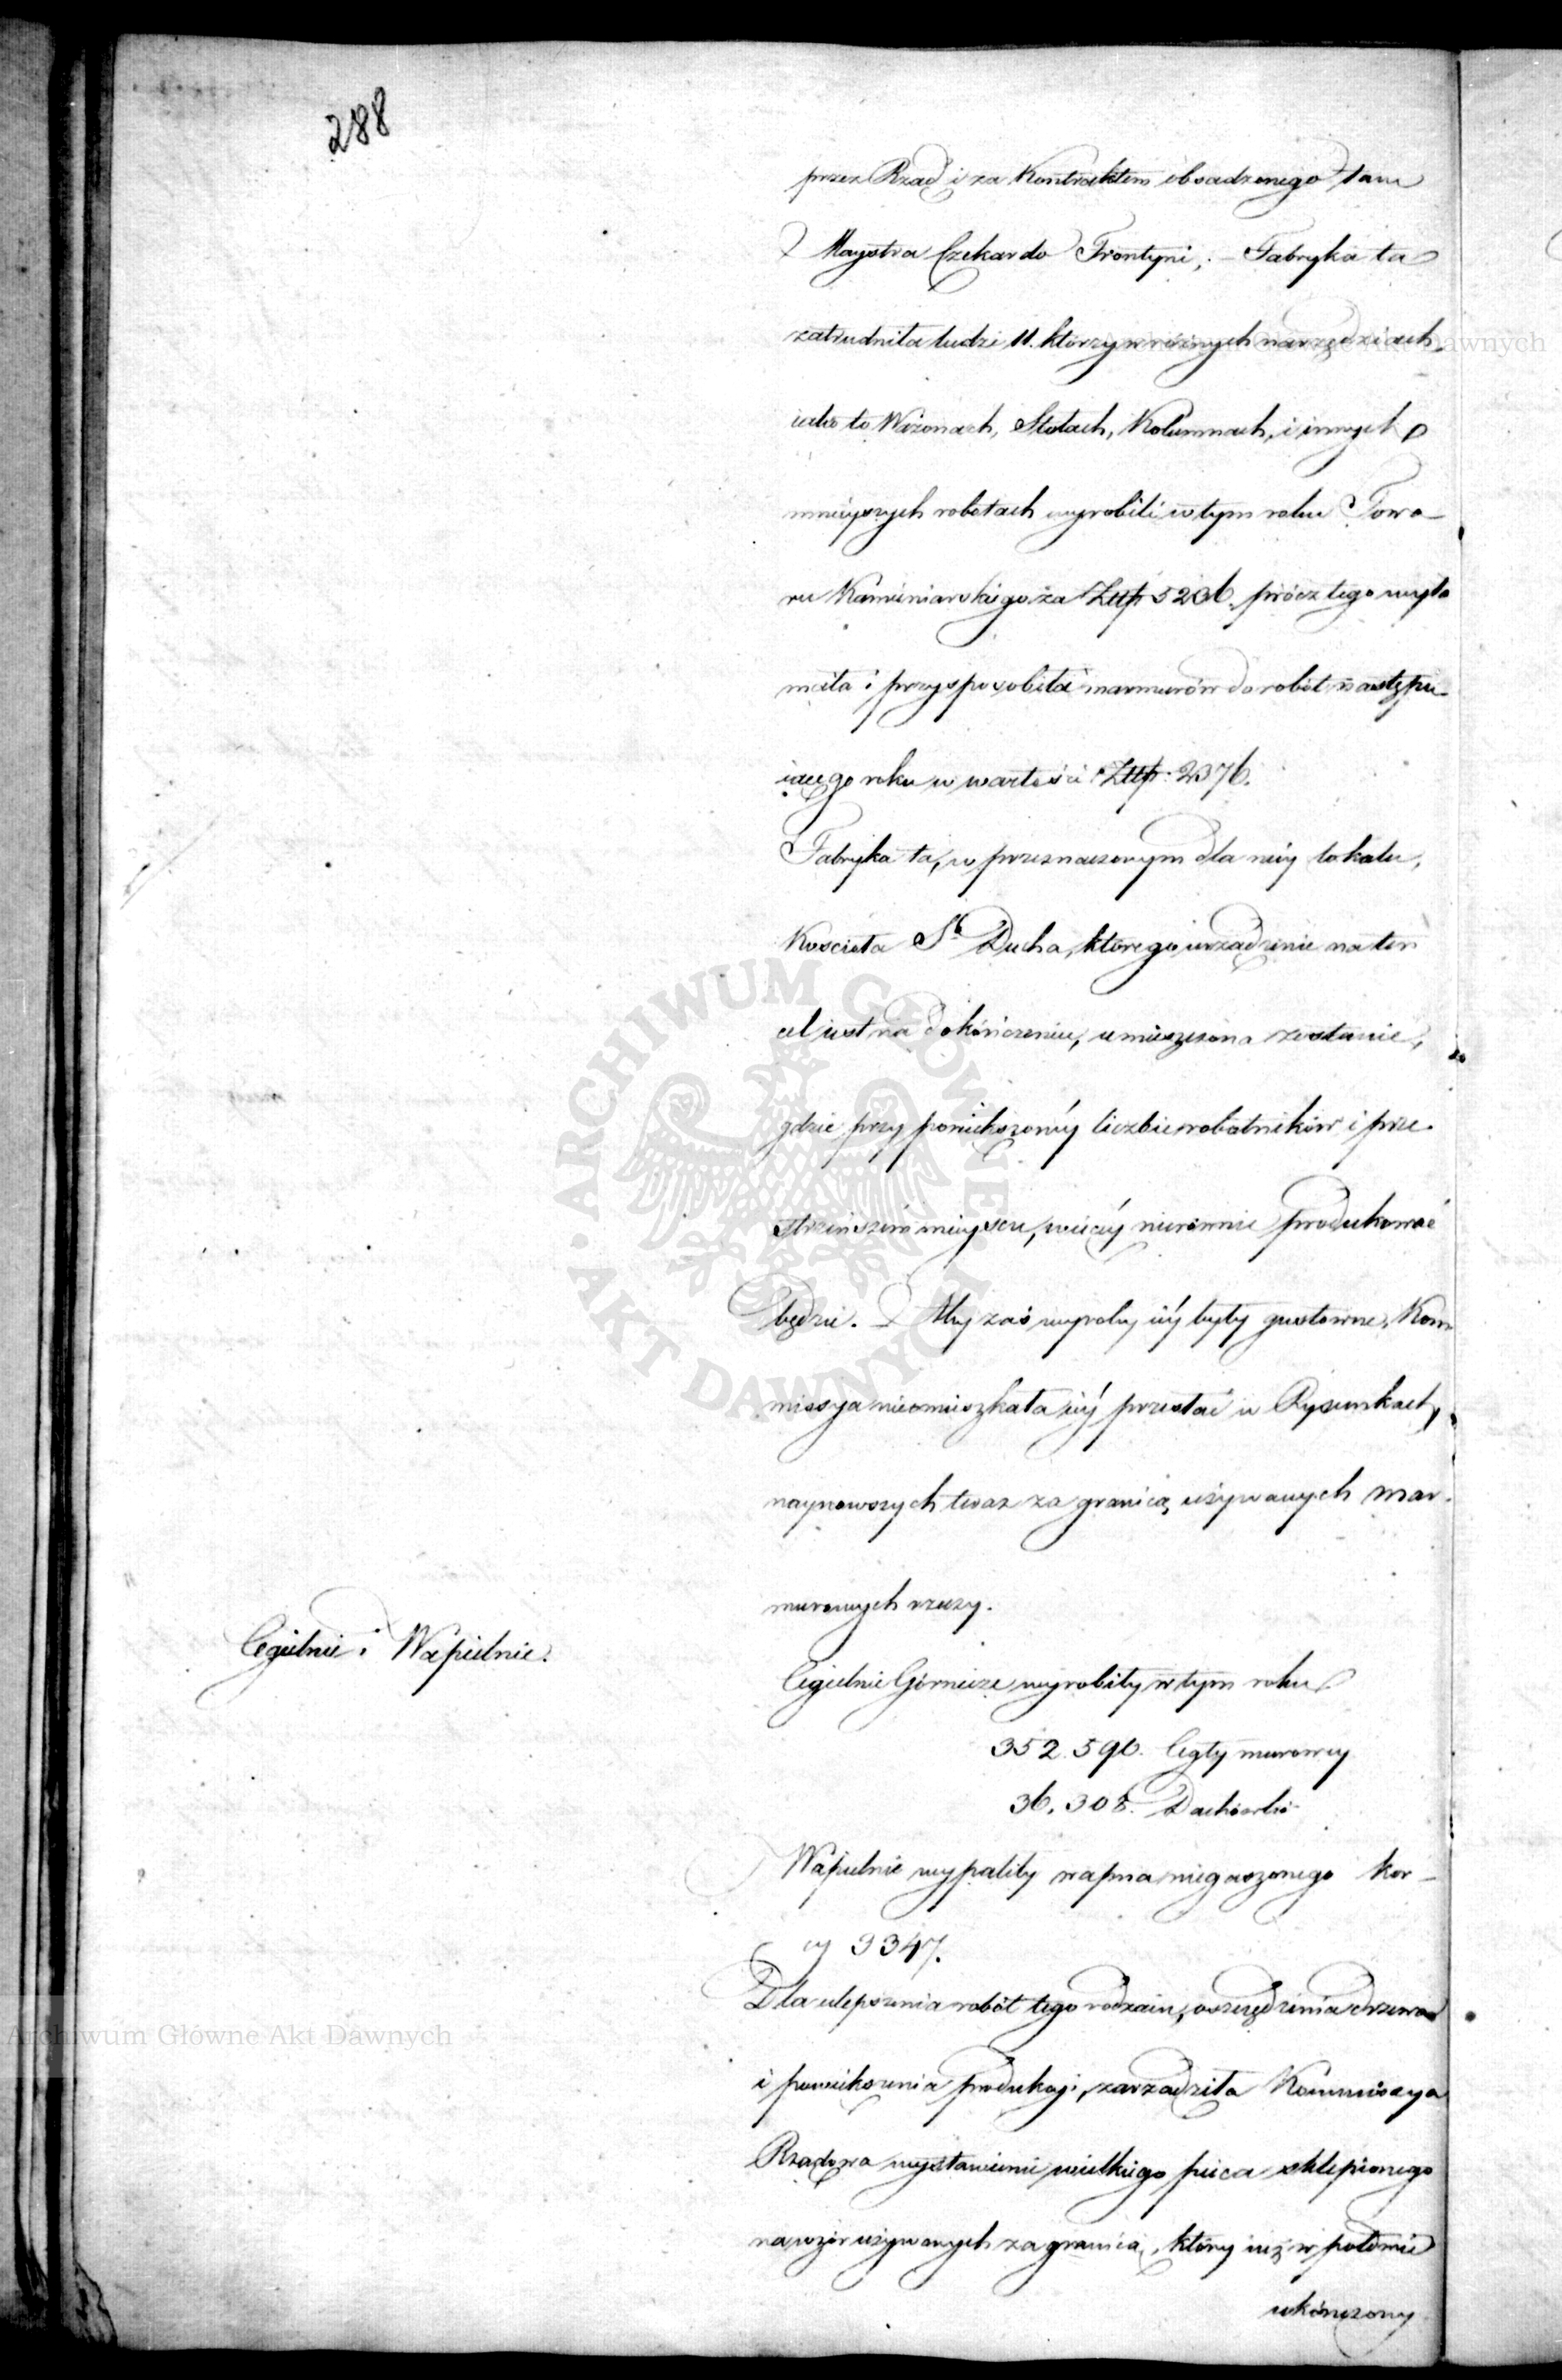 288
przez Rząd i za Kontraktem obsadzonego tam
Maystra Czekardo Frontyni; – Fabryka ta
zatrudniła ludzi 11. którzy w różnych narzędziach
iako to Wazonach, Stołach, Kolumnach, i innych
mnieyszych robotach wyrobili w tym roku Towa-
ru Kamieniarskiego za Złłp 5206. prócz tego wyła
mała i przysposobiła marmurów do robót następu-
iącego roku w wartości Złłp: 2376.
Fabryka ta, w przeznaczonym dla niéy lokalu,
Kościoła S. Ducha, którego urządzenie na ten
cel iest na dokończeniu, umieszczona zostanie,
gdzie przy powiększonéy liczbie robotników i prze-
strzeńszém mieyscu, więcéy nierównie produkować
będzie. – Aby zaś wyroby iéy były gustowne, Kom
missya nieomieszkała iéy przesłać w Rysunkach,
naynowszych teraz za granicą używanych mar-
murowych rzeczy.
Cegielnie i Wapielnie.
Cegielnie Górnicze wyrobiły w tym roku
352.590. Cegły murowey
36.308. Dachówki
Wapielnie wypaliły wapna niegaszonego kor-
cy 3347.
Dla ulepszenia robót tego rodzaiu, oszczędzenia drzewa
i powiększenia produkcyi, zarządziła Kommissya
Rządowa wystawienie wielkiego pieca sklepionego
na wzór używanych za granicą, który iuż w połowie
ukończony
Archiwum Główne Akt Dawnych
Archiwum Główne Akt Dawnych
ARCHIWUM GŁÓWNE AKT DAWNYCH